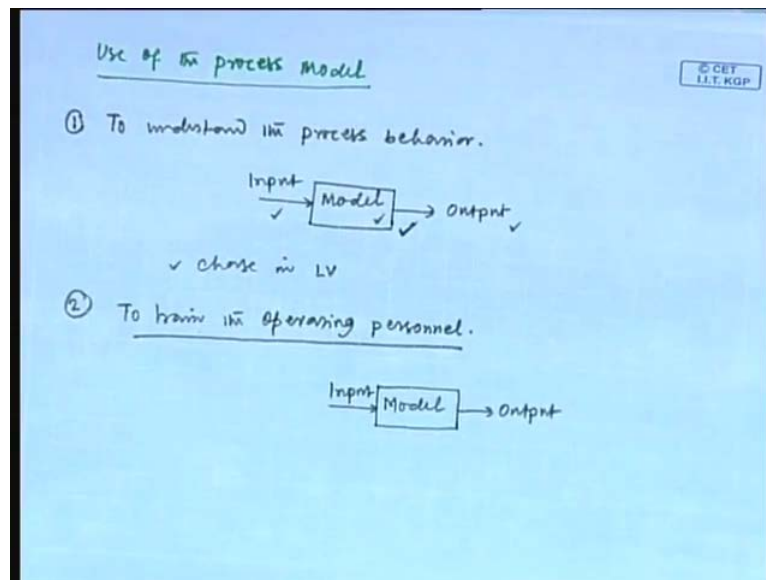 Use of the process Model
© CET
I.I.T. KGP
① To understand the process behavior.
Input
Model
Output
✓ change in LV
② To train the operating personnel.
Input
Model
Output